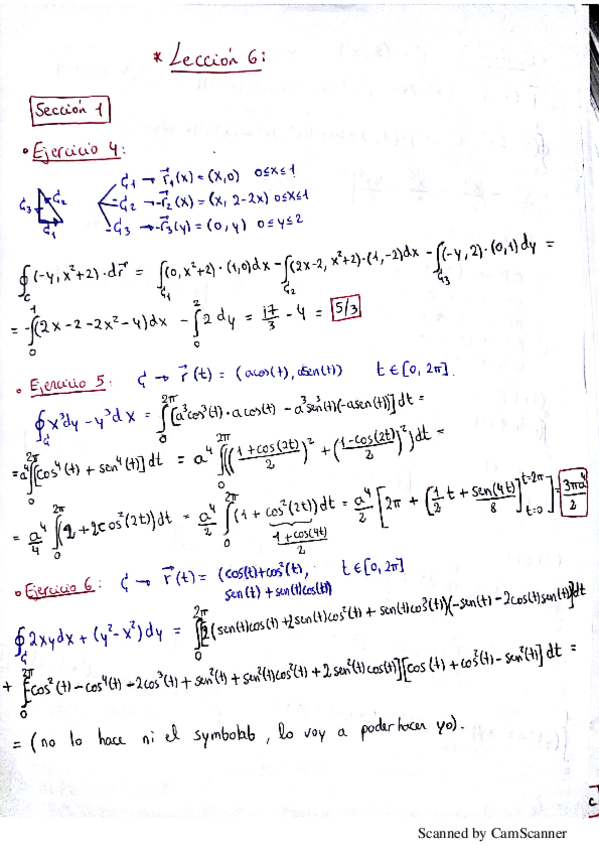 * Lección 6:
Sección 1
• Ejercicio 4:
C₁ → r⃗₁(x) = (x,0) 0≤x≤1
C₂ → -r⃗₂(x) = (x, 2-2x) 0≤x≤1
C₃ → -r⃗₃(y) = (0, y) 0≤y≤2
C₃ C₂ C₁
∮_C (-y, x²+2)·dr⃗ = ∫_C₁ (0, x²+2)·(1,0)dx - ∫_C₂ (2x-2, x²+2)·(1,-2)dx - ∫_C₃ (-y, 2)·(0,1)dy =
= -∫₀¹ (2x-2-2x²-4)dx - ∫₀² 2dy = 17/3 - 4 = 5/3
• Ejercicio 5: C → r⃗(t) = (acos(t), asen(t)) t∈[0, 2π].
∮_C x³dy - y³dx = ∫₀^2π [a³cos³(t)·acos(t) - a³sen³(t)(-asen(t))]dt =
= a⁴∫₀^2π [cos⁴(t) + sen⁴(t)]dt = a⁴∫₀^2π ((1+cos(2t)/2)² + (1-cos(2t)/2)²)dt =
= a⁴/4 ∫₀^2π (2+2cos²(2t))dt = a⁴/2 ∫₀^2π (1+cos²(2t))dt = a⁴/2 [2π + (1/2 t + sen(4t)/8]_t=0^t=2π] = 3πa⁴/2
1+cos(4t)/2
• Ejercicio 6: C → r⃗(t) = (cos(t)+cos²(t), t∈[0, 2π]
sen(t)+sen(t)cos(t))
∮_C 2xydx + (y²-x²)dy = ∫₀^2π [2(sen(t)cos(t)+2sen(t)cos²(t)+sen(t)cos³(t))(-sen(t)-2cos(t)sen(t)]dt
+ ∫₀^2π [-cos²(t)-cos⁴(t)-2cos³(t)+sen²(t)+sen²(t)cos²(t)+2sen²(t)cos(t)][cos(t)+cos²(t)-sen²(t)]dt =
= (no lo hace ni el symbolab, lo voy a poder hacer yo).
C
Scanned by CamScanner